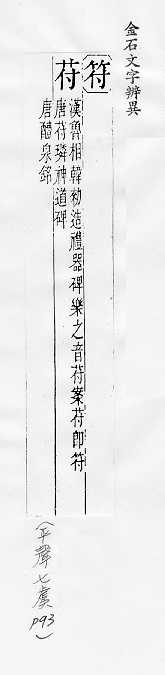 金石文字辨異
符
苻
漢魯相韓勑造禮器碑樂之音苻案苻即符
唐苻璘神道碑
唐醴泉銘
(平聲七虞
p93)